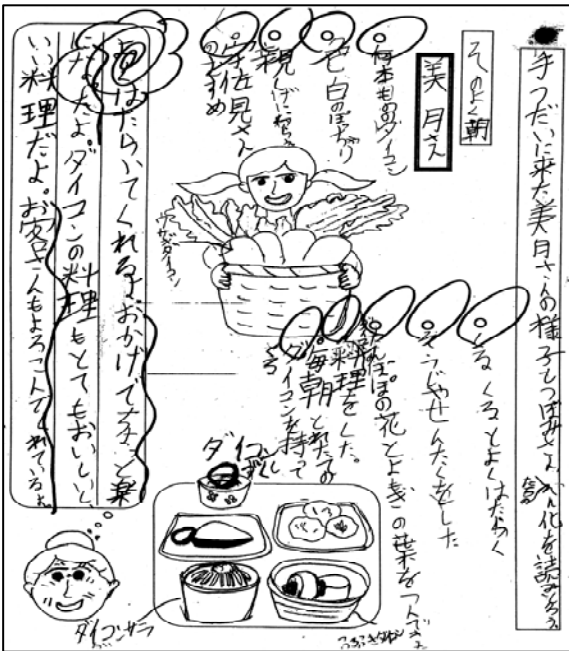 手つだいに来た美月さんの様子とつぼみさんのへん化を読みとろう
そのよく朝
美月さん
何本ものダイコン
色白のぽっちゃり
親しげにわらう
宇佐見さん
のむすめ
ウサギダイコン
くるくるとよくはたらく
そうじやせんたくをした
たんぽぽの花とよもぎの葉をつんできて
料理をした。
毎朝とれたての
ダイコンを持って
くる
はたらいてくれるよ。おかげでずいぶん楽
になったよ。ダイコンの料理もとてもおいしいし、
いい料理だよ。お客さんもよろこんでくれているよ。
ダイコン
おろし
ダイコンサラ
ダ